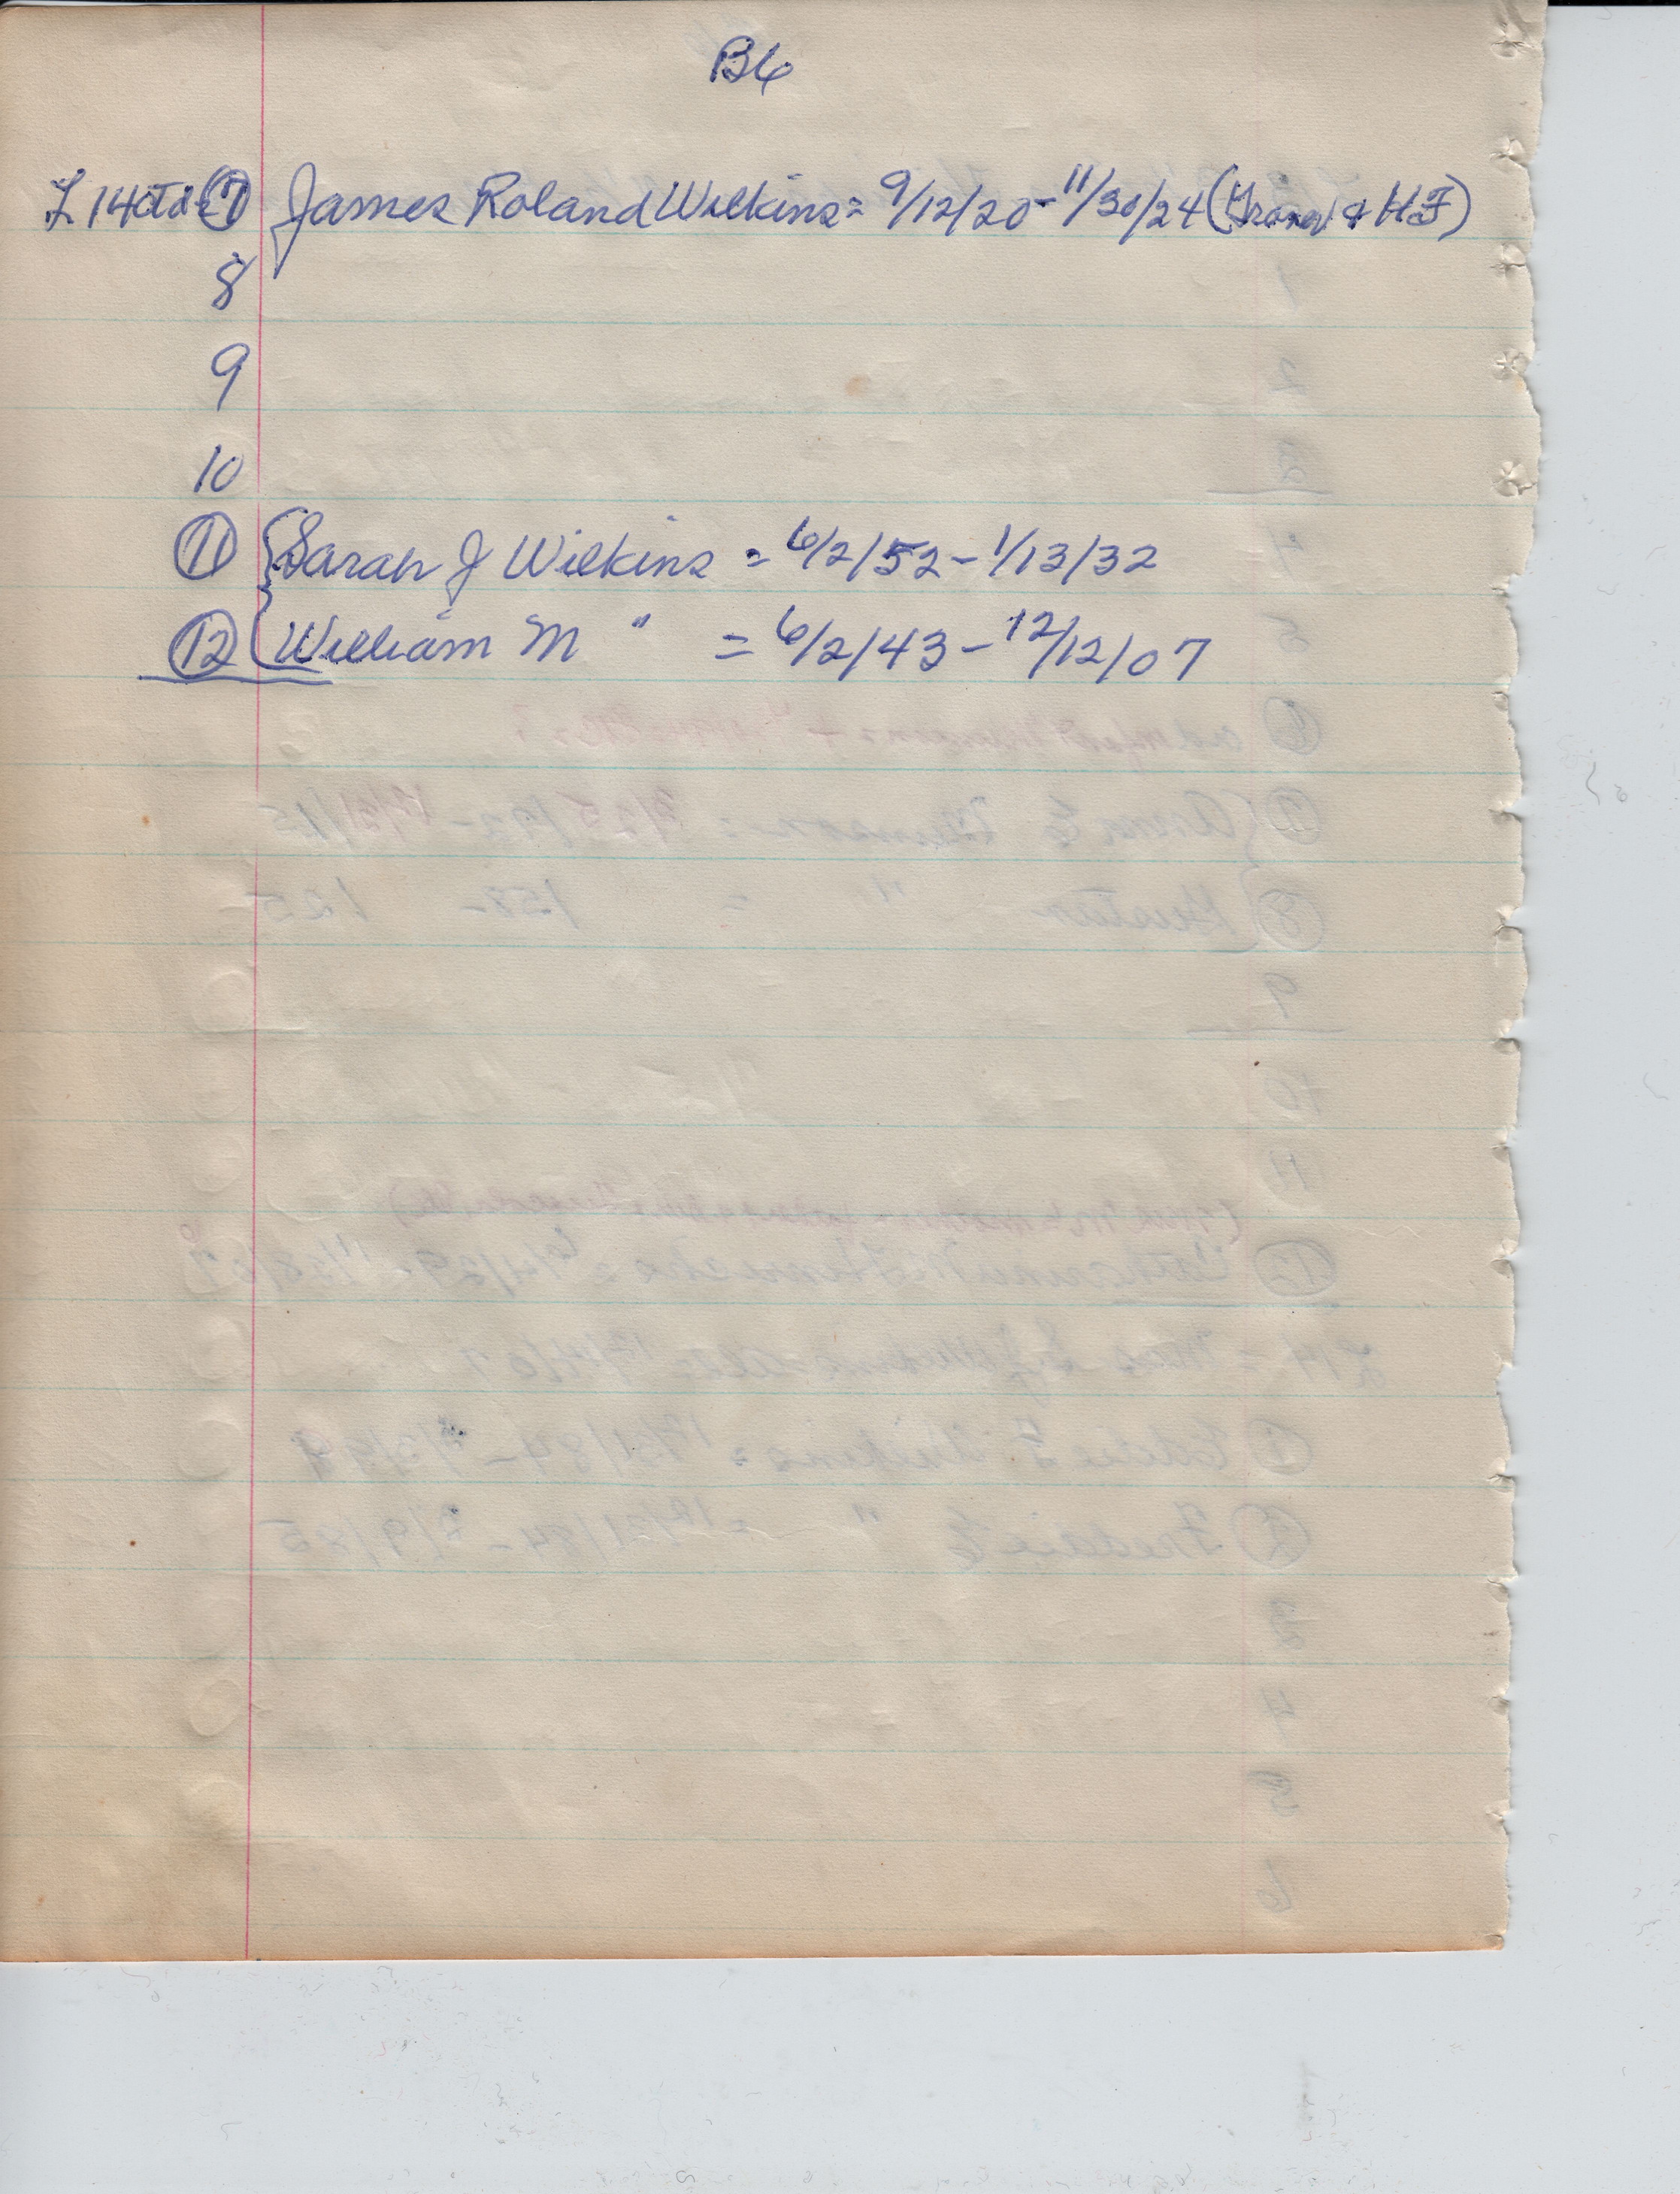 B6
L 14ctd (7) James Roland Wilkins = 9/12/20 - 11/30/24 ( & HF)
8
9
10
(11) { Sarah J Wilkins = 6/2/52 - 1/13/32
(12) { William M " = 6/2/43 - 12/12/07